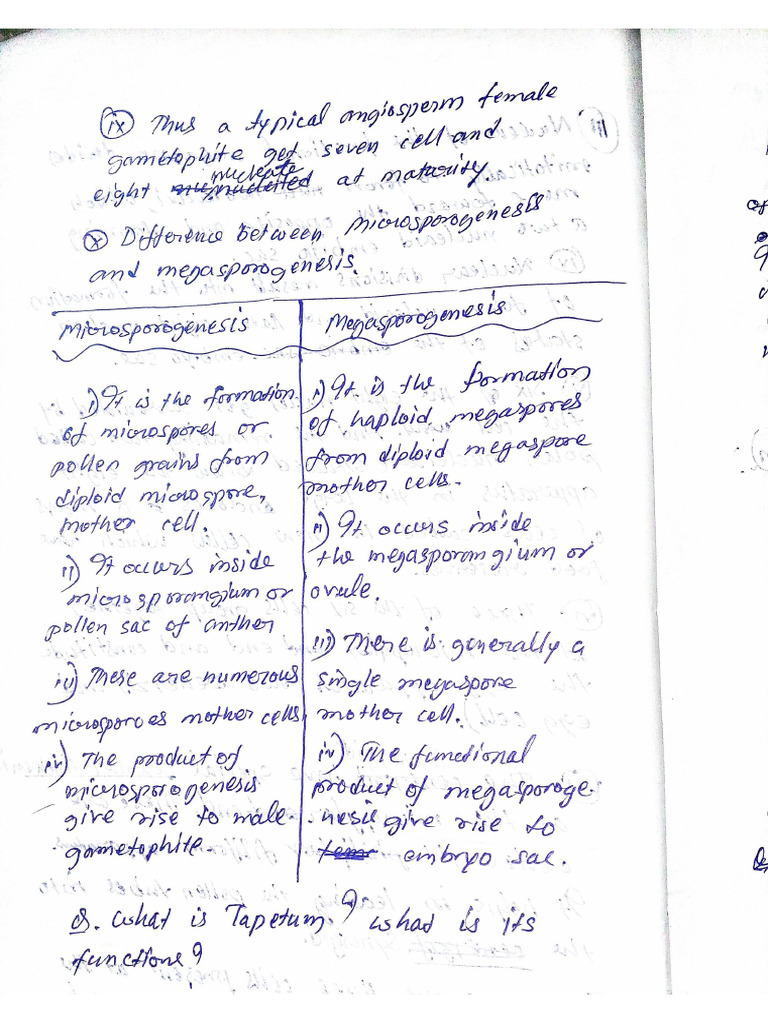 ix Thus a typical angiosperm female
gametophite get seven cell and
eight nucleate at maturity.
x Difference between microsporogenesis
and megasporogenesis.
Microsporogenesis
i) It is the formation
of microspores or
pollen grains from
diploid microspore,
mother cell.
ii) It occurs inside
microsporangium or
pollen sac of anther
iii) These are numerous
microsporoes mother cells
iv) The product of
microsporogenesis
give rise to male.
gametophite.
Megasporogenesis
i) It is the formation
of haploid megaspores
from diploid megaspore
mother cells.
ii) It occurs inside
the megasporangium or
ovule.
iii) There is generally a
single megaspore
mother cell.
iv) The functional
product of megasporoge-
nesis give rise to
embryo sac.
Q. What is Tapetum? What is its
functione?